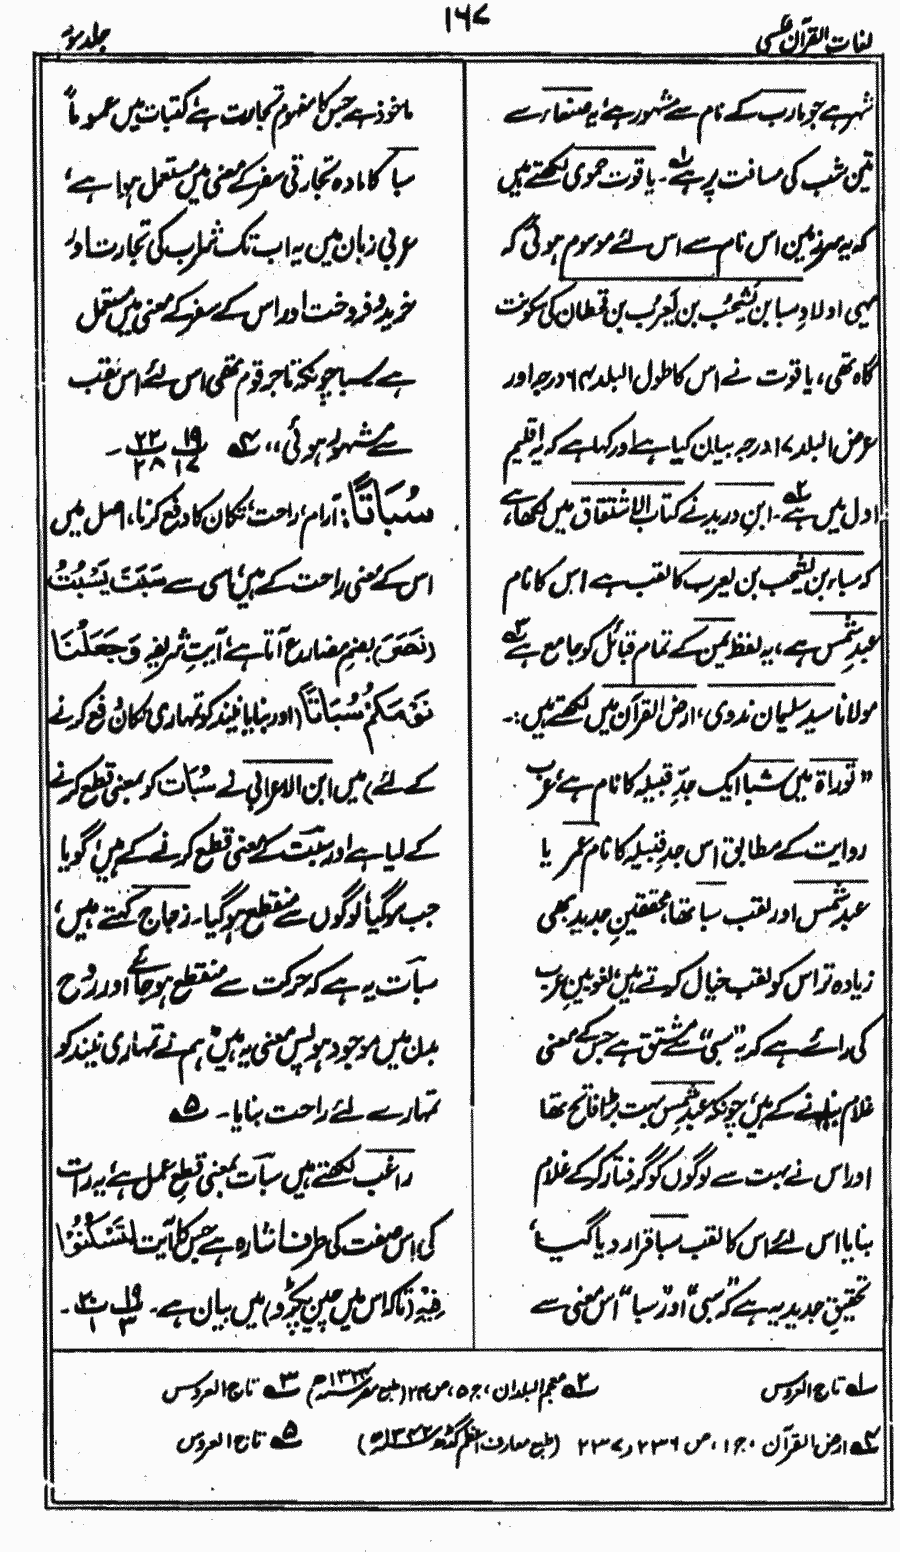 لغات القرآن عکسی
۱۶۷
جلد سوم
شہر ہے جو مارب کے نام سے مشہور ہے، یہ صنعاء سے
تین شب کی مسافت پر ہے ۱؎۔ یاقوت حموی لکھتے ہیں
کہ یہ سرزمین اس نام سے اس لئے موسوم ہوئی کہ
یہی اولادِ سبا بن یشجب بن یعرب بن قحطان کی سکونت
گاہ تھی، یاقوت نے اس کا طول البلد ۶۴ درجہ اور
عرض البلد ۱۷ درجہ بیان کیا ہے اور کہا ہے کہ یہ اقلیم
اول میں ہے ۲؎۔ ابنِ درید نے کتاب الاشتقاق میں لکھا ہے،
کہ سباء بن یشجب بن یعرب کا لقب ہے اس کا نام
عبدِ شمس ہے، یہ لفظ یمن کے تمام قبائل کو جامع ہے ۳؎
مولانا سید سلیمان ندوی، ارض القرآن میں لکھتے ہیں :۔
” توراۃ میں شبا ایک جدِّ قبیلہ کا نام ہے، عرب
روایت کے مطابق اس جدِ قبیلہ کا نام عمر یا
عبد شمس اور لقب سبا تھا، محققینِ جدید بھی
زیادہ تر اس کو لقب خیال کرتے ہیں، لغویینِ عرب
کی رائے ہے کہ یہ ”سبی“ سے مشتق ہے جس کے معنی
غلام بنانے کے ہیں، چونکہ عبدِ شمس بہت بڑا فاتح تھا
اور اس نے بہت سے لوگوں کو گرفتار کر کے غلام
بنایا اس لئے اس کا لقب سبا قرار دیا گیا،
تحقیقِ جدید یہ ہے کہ ”سبی“ اور ”سبا“ اس معنی سے
ماخوذ ہے جس کا مفہوم تجارت ہے، کتبات میں عموماً
سبا کا مادہ تجارتی سفر کے معنی میں مستعمل ہوا ہے،
عربی زبان میں یہ اب تک شراب کی تجارت اور
خرید و فروخت اور اس کے سفر کے معنی میں مستعمل
ہے سبا چونکہ تاجر قوم تھی اس لئے اس لقب
سے مشہور ہوئی،، ۴؎ ۱۹/۱۷ ۲۲/۲۸ ۔
سُبَاتًا : آرام، راحت، تکان کا دفع کرنا، اصل میں
اس کے معنی راحت کے ہیں، اسی سے سَبَتَ یَسْبُتُ
(نَصَرَ) بضمِ مضارع آتا ہے، آیتِ شریفہ وَجَعَلْنَا
نَوْمَکُمْ سُبَاتًا (اور بنایا نیند کو تمہاری تکان دفع کرنے
کے لئے) میں ابن الاعرابی نے سُبَات کو بمعنی قطع کرنے
کے لیا ہے اور سبت کے معنی قطع کرنے کے ہیں، گویا
جب سو گیا، لوگوں سے منقطع ہو گیا۔ زجاج کہتے ہیں،
سبات یہ ہے کہ حرکت سے منقطع ہو جائے اور روح
بدن میں موجود ہو پس معنی یہ ہیں، ہم نے تمہاری نیند کو
تمہارے لئے راحت بنایا۔ ۵؎
راغب لکھتے ہیں سبات بمعنی قطعِ عمل ہے، یہ رات
کی اس صفت کی طرف اشارہ ہے جس کا آیت لِتَسْکُنُوْا
فِیْہِ (تاکہ اس میں چین پکڑو) میں بیان ہے۔ ۱۹/۳ ۳۰/۱ ۔
۱؎ تاج العروس
۲؎ معجم البلدان، ج ۵، ص ۲۴ (طبع مصر ۱۳۲۴ھ)
۳؎ تاج العروس
۴؎ ارض القرآن، ج ۱، ص ۲۳۶ و ۲۳۷ (طبع معارف اعظم گڈھ ۱۳۴۲ھ)
۵؎ تاج العروس